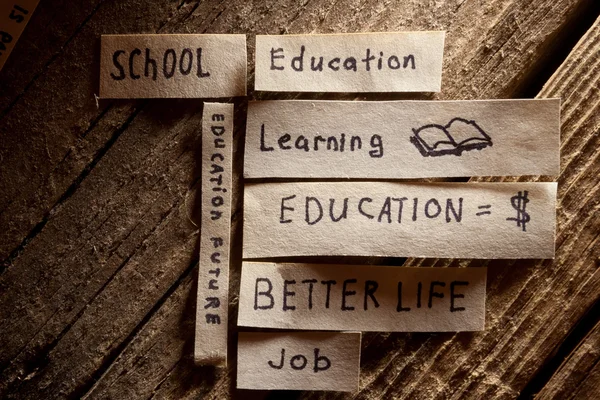 SChOOL
Education
Learning
EDUCATION FUTURE
EDUCATION = $
BETTER LIFE
Job